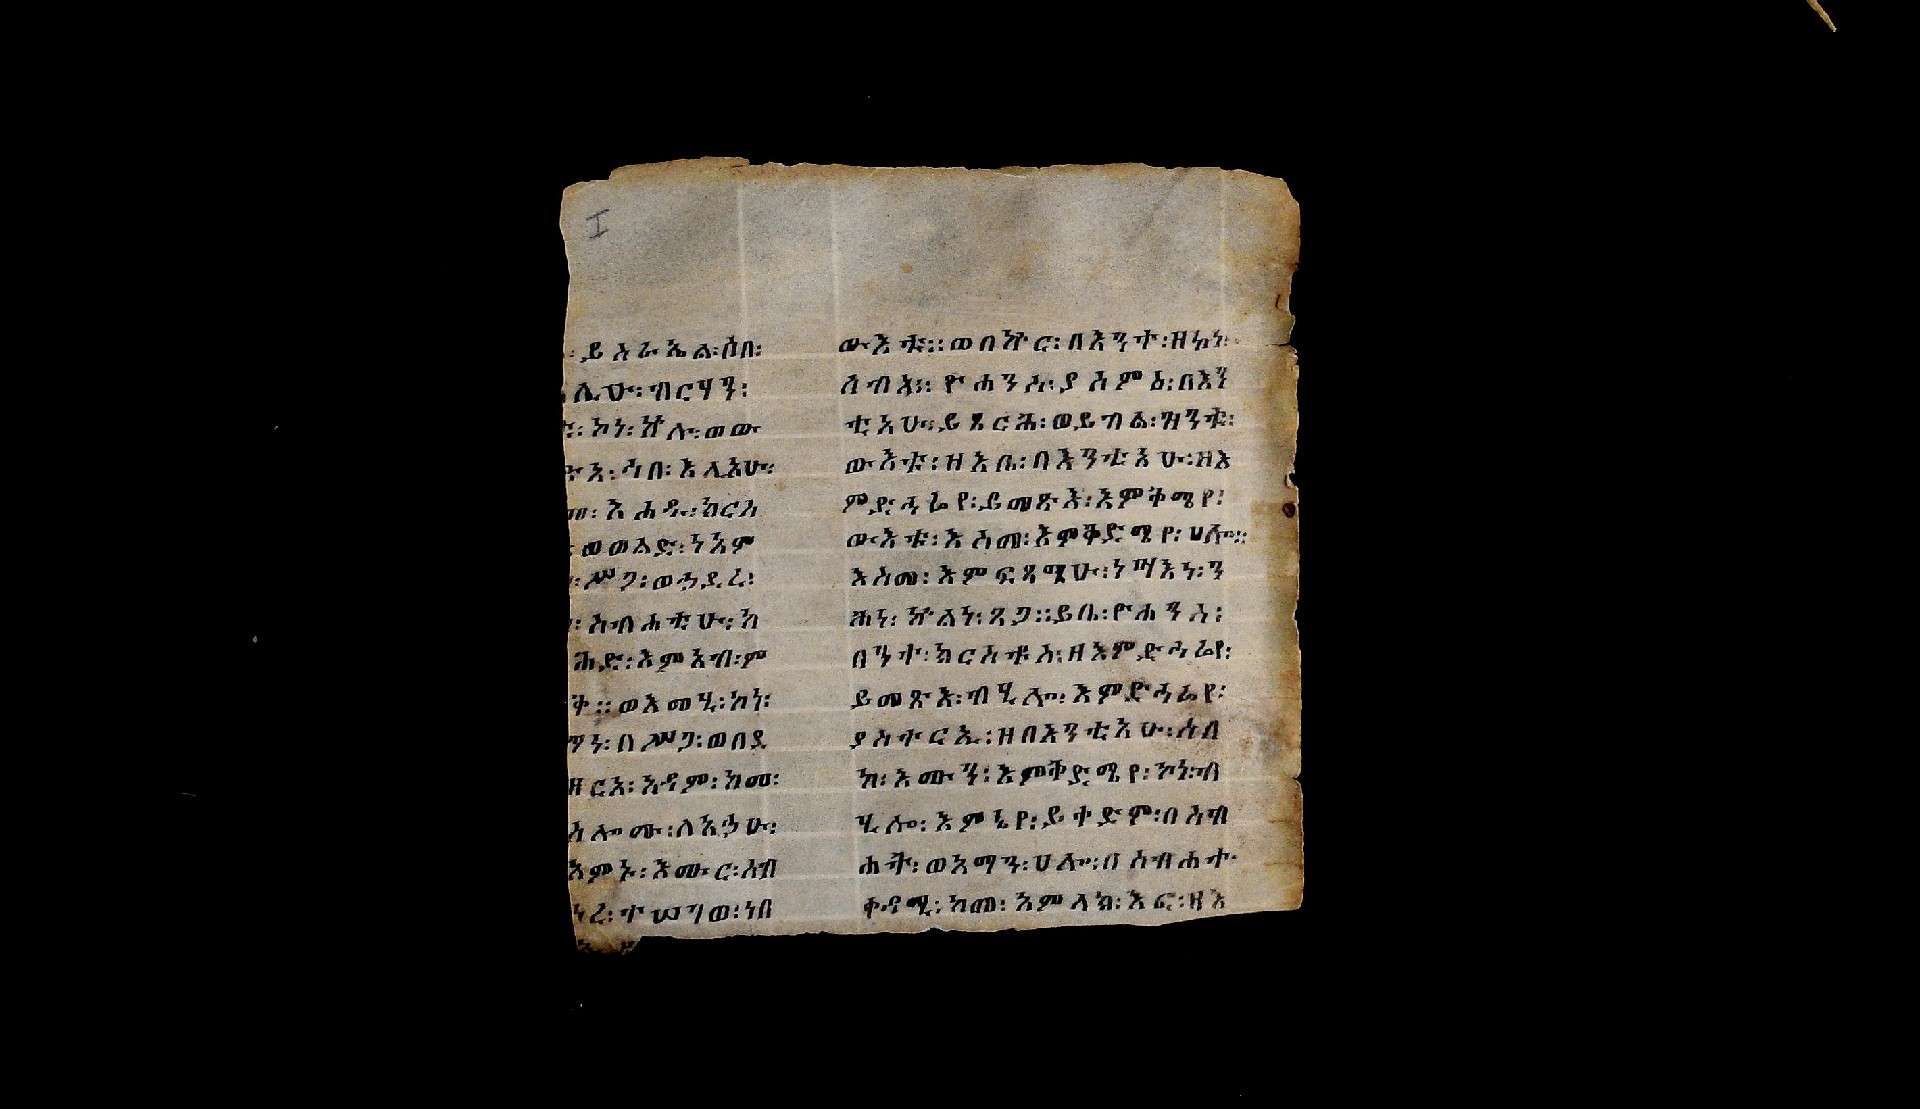 I
፡ ይእራኤል፡ ሰበ፡
ሌሁ፡ ብርሃን፡
፡ ኮነ፡ ኵሉ፡ ወው
እ፡ ኀበ፡ እሊአሁ፡
፡ እሐዱ፡ ክርስ
፡ ወወልድ፡ ነአም
፡ ሥጋ፡ ወኀደረ፡
፡ ስብሐቲሁ፡ ከ
ሕድ፡ እምአብ፡ ም
ቅ። ወእመሂ፡ ኮነ፡
ኅነ፡ በሥጋ፡ ወበደ
ዘርአ፡ አዳም፡ ከመ፡
አሎሙ፡ ለአኃው፡
እምኑ፡ እሙር፡ አብ
ነረ፡ ተሠገወ፡ ነበ
ውእቱ። ወበኵር፡ በእንተ፡ ዘኬነ፡
ሰብእ። ዮሐንስ፡ ያሰምዕ፡ በእን
ቲአሁ፡ ይጼርሕ፡ ወይብል፡ ዝንቱ፡
ውእቱ፡ ዝእቤ፡ በእንቲአሁ፡ ዘእ
ምድኃሬየ፡ ይመጽእ፡ እምቅሜየ፡
ውእቱ፡ እስመ፡ እምቅድሜየ፡ ሀሎ።
እስመ፡ እምፍጻሜሁ፡ ነሣእነ፡ ን
ሕነ፡ ኵልነ፡ ጸጋ። ይቤ፡ ዮሐንስ፡
በንተ፡ ክርስቱስ፡ ዘእምድኃሬየ፡
ይመጽእ፡ ብሂሎ፡ እምድኃሬየ፡
ያስተርኢ፡ ዝበእንቲአሁ፡ ሰበ
ከ፡ እሙን፡ እምቅድሜየ፡ ኮነ፡ ብ
ሂሎ፡ እምኔየ፡ ይቀድም፡ በስብ
ሐት፡ ወአማን፡ ሀሎ፡ በስብሐት
ቀዳሚ፡ ከመ፡ አምላክ፡ እፎ፡ ዘእ